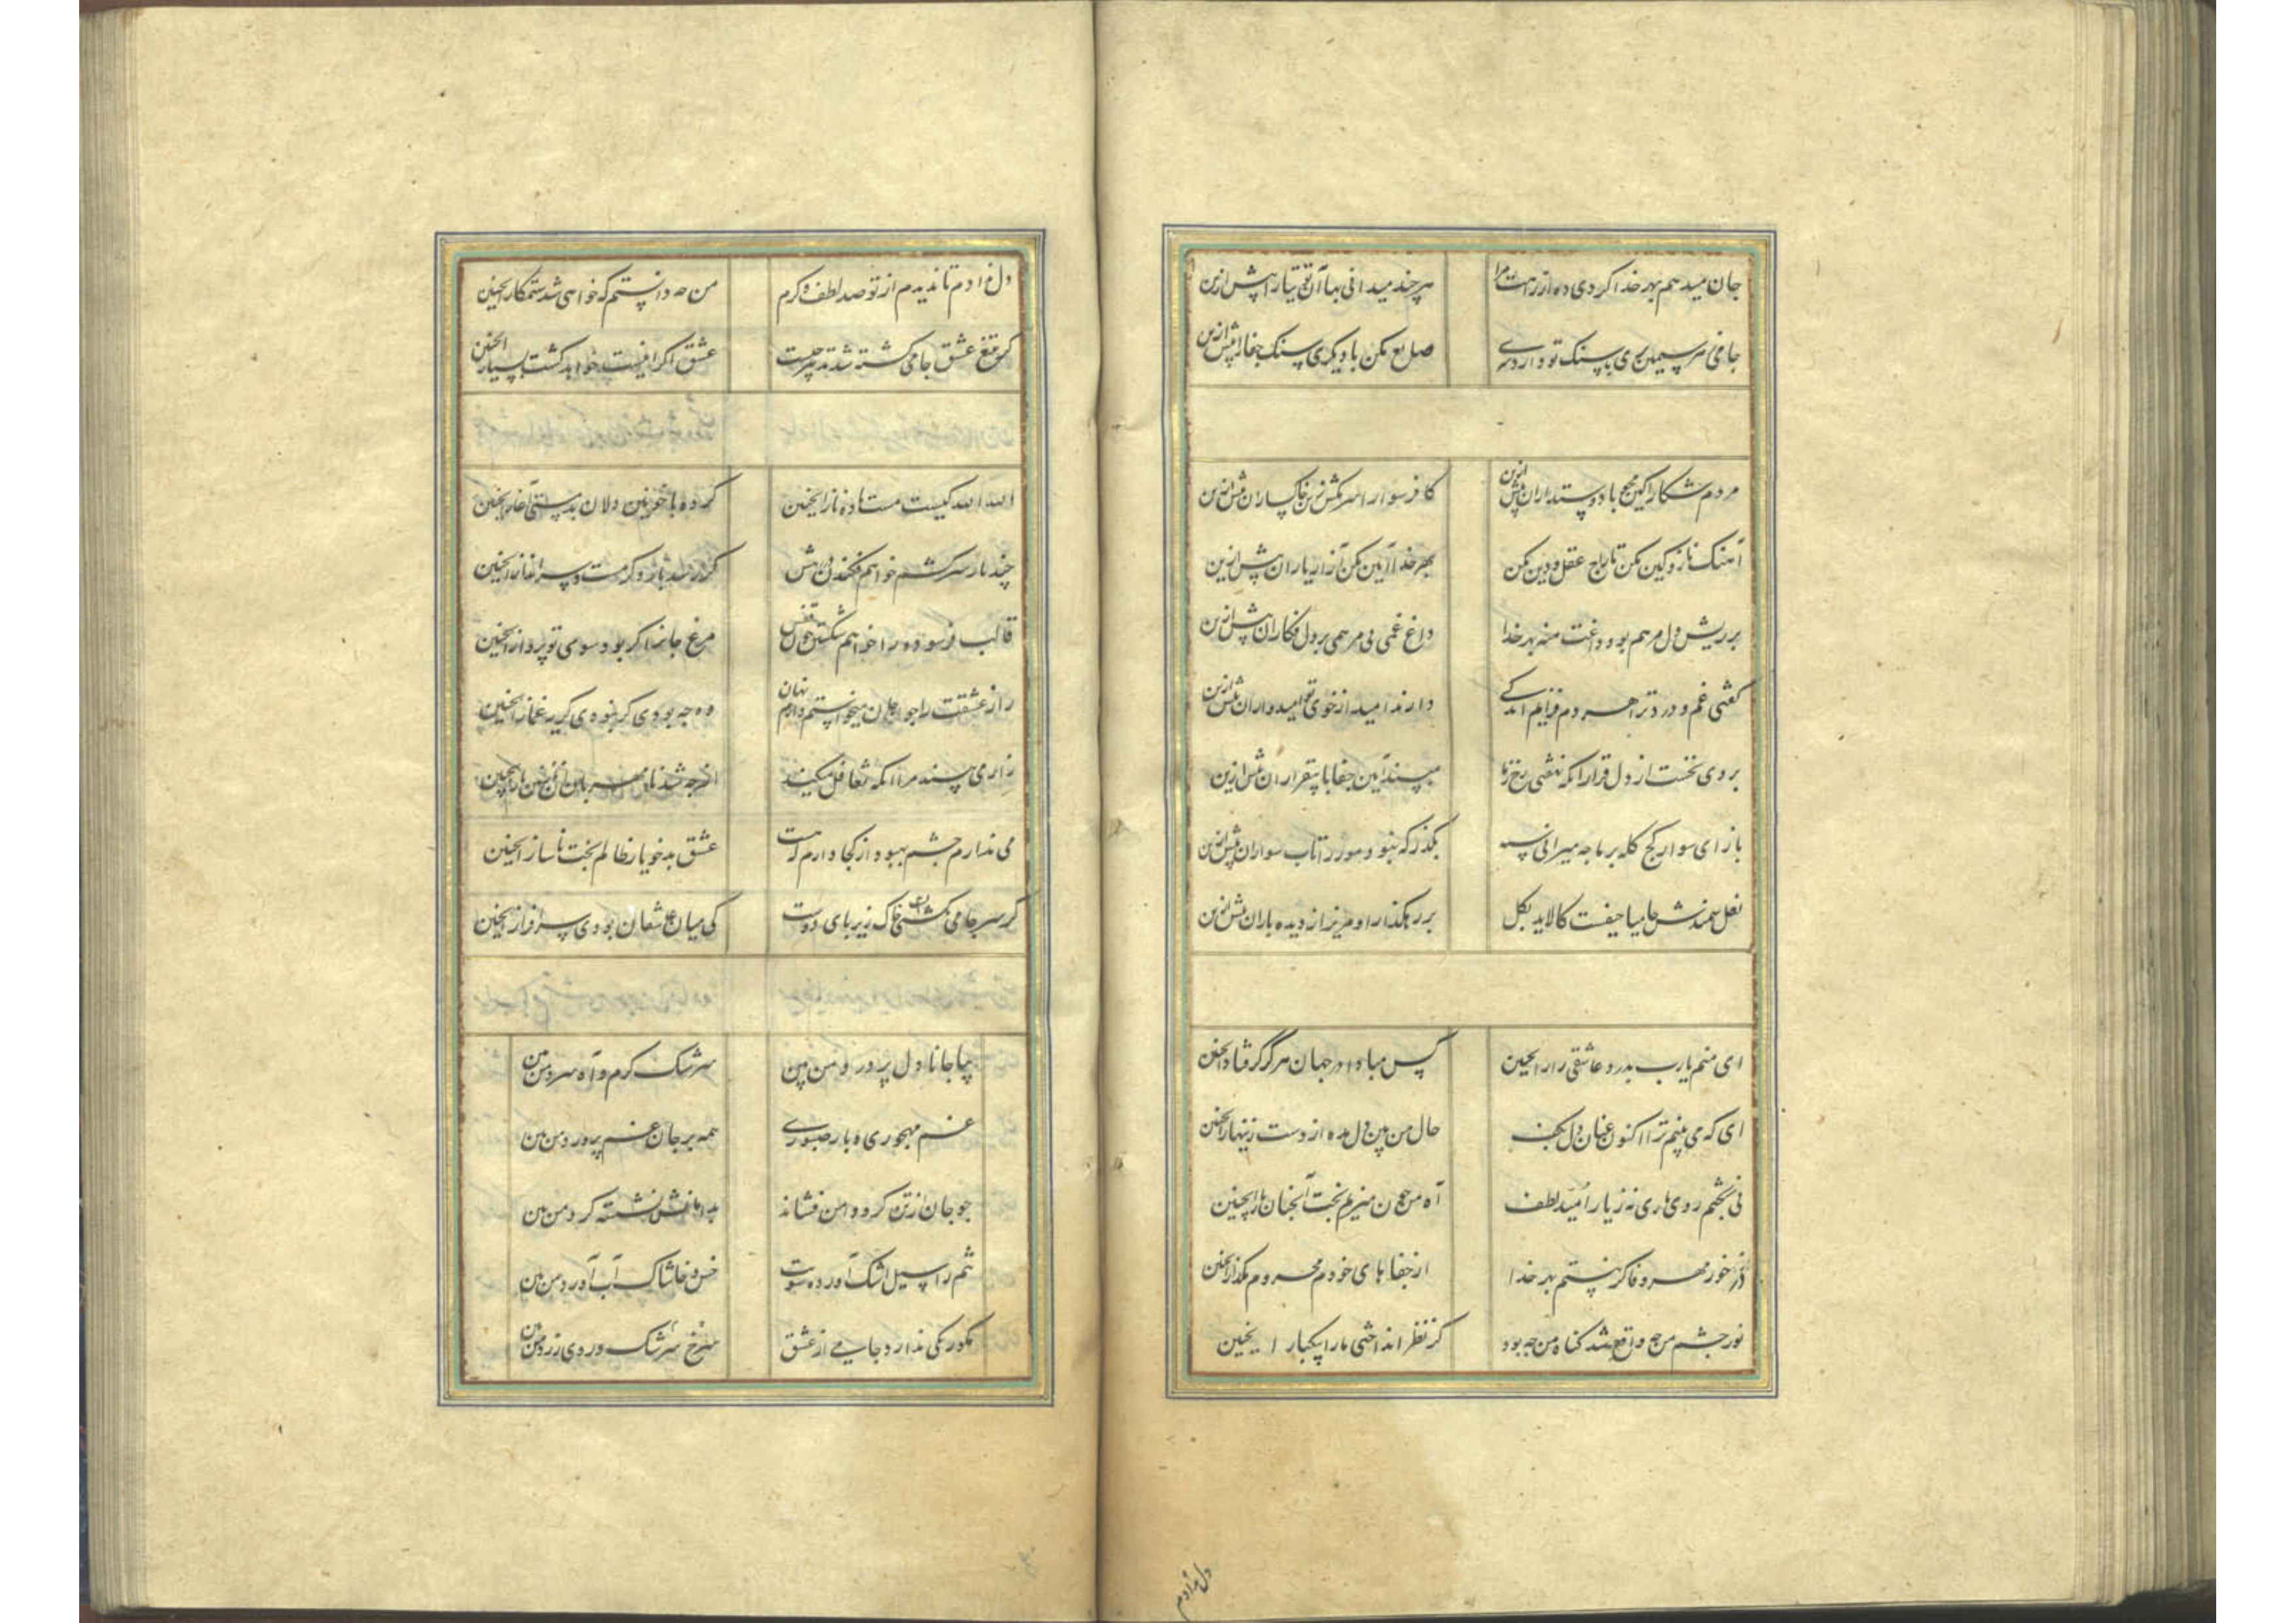 جان میدهم بهر خدا اکر دی ده از زاهت مرا هر چند میدانی بهاآن تو تیارا پیش ازین
جامی سر سیمین بری با سنک تو دارد سری صلع مکن با دیکری سنک جفارا پیش ازین
مردم شکارا کین مجو با دوستداران پیش ازین کافر سوارا سر مکش زین خاکساران پیش ازین
آهنک ناز و کین مکن تاراج عقل و دین مکن بهر خدا آیین مکن آزار یاران پیش ازین
بر ریش دل مرهم بود داغت منه بهر خدا داغ غمی بی مرهمی بر دل فکاران پیش ازین
کفتی غم و درد ترا هر دم فزایم اندکے دارند امید از خوی تو امیدواران پیش ازین
بردی نخست از دل قرار انکه نهفتی رخ زما مپسند آیین جفا با بیقراران پیش ازین
باز ای سوار کج کله بر ما چه میرانی سپه بکذر که نبود مور را تاب سواران پیش ازین
نعل سمندش جامیا حیفست کالاید بکل بر رهکذار او مریز از دیده باران پیش ازین
ای منم یارب بدرد عاشقی زار اینچنین کس مبادا در جهان هرکز کرفتار اینچنین
ای که می بینم ترا اکنون عنان دل بکف حال من بین دل مده از دست زنهار اینچنین
نی بچشم روی یاری نه ز یار امید لطف آه من چون میزیم بخت آنچنان یار اینچنین
در خور مهر و وفا کر نیستم بهر خدا از جفاهای خودم محروم مکذار اینچنین
نور چشم من چه واقع شد کناه من چه بود کز نظر انداختی مارا بیکبار اینچنین
دل ندادم
دل ندادم تا ندیدم از تو صد لطف و کرم من چه دانستم که خواهی شد ستمکار اینچنین
کر بتیغ عشق جامی کشته شد تدبیر چیست عشق اکر اینست خواهد کشت بسیار اینچنین
الله الله کیست مست باده ناز اینچنین کرده با خونین دلان بدمستی آغاز اینچنین
چند بار سر کشم خواهم فکندن پیش کر رسد بار دکر مست و سرانداز اینچنین
قالب فرسوده را خواهم شکستن چون قفس مرغ جانرا کر بود سوی تو پرواز اینچنین
راز عشقت را چو جان میخواستم دارم نهان وه چه بودی کر نبودی کریه غماز اینچنین
زار می بیند مرا انکه تغافل میکند از چه شد نامهربان آن شوخ طناز اینچنین
می ندارم چشم بهبود از کجا دارم که هست عشق بدخو یار ظالم بخت ناساز اینچنین
کر سر جامی نکشتی خاک زیر پای دوست کی میان عاشقان بودی سرافراز اینچنین
بیا جانا دل پر درد من بین سرشک کرم و آه سرد من بین
غم مهجوری و بار صبوری همه بر جان غم پرورد من بین
چو جان از تن کرد دامن فشاند بدامانش نشسته کرد من بین
تنم را سیل اشک آورده سویت خس و خاشاک آب آورد من بین
مکو رنکی ندارد جامی از عشق سرخ سرشک و روی زرد من بین